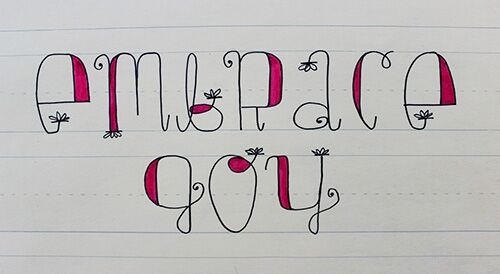 embrace
goy